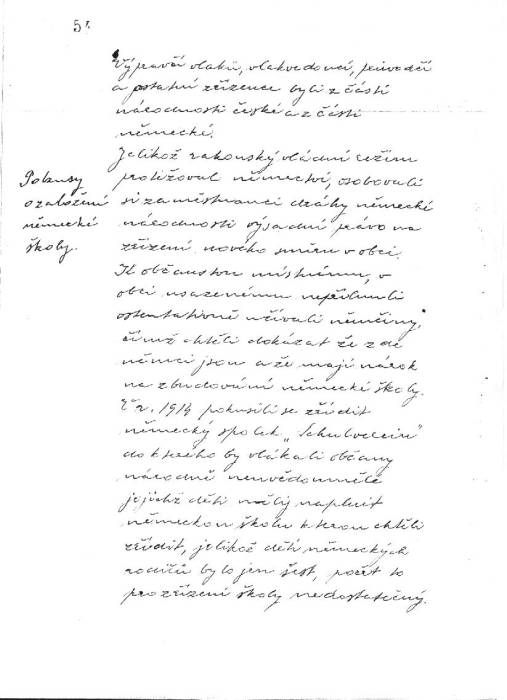 5
Výpravčí vlaků, vlakvedoucí, průvodčí
a ostatní zřízence byli z části
národnosti české a z části
německé.
Jelikož rakouský vládní režim
protěžoval němectví, osobovali
si zaměstnanci dráhy německé
národnosti výsadní právo na
zřízení nového směru v obci.
K občanstvu místnímu, v
obci usazenému nepřilnuli
ostentativně užívali němčiny,
čímž chtěli dokázat že zde
němci jsou a že mají nárok
na zbudování německé školy.
V r. 1914 pokusili se zřídit
německý spolek „Schulverein"
do kterého by vlákali občany
národně neuvědomělé
jejichž děti měly naplnit
německou školu kterou chtěli
zřídit, jelikož dětí německých
rodičů bylo jen šest, počet to
pro zřízení školy nedostatečný.
Pokusy
o založení
německé
školy.